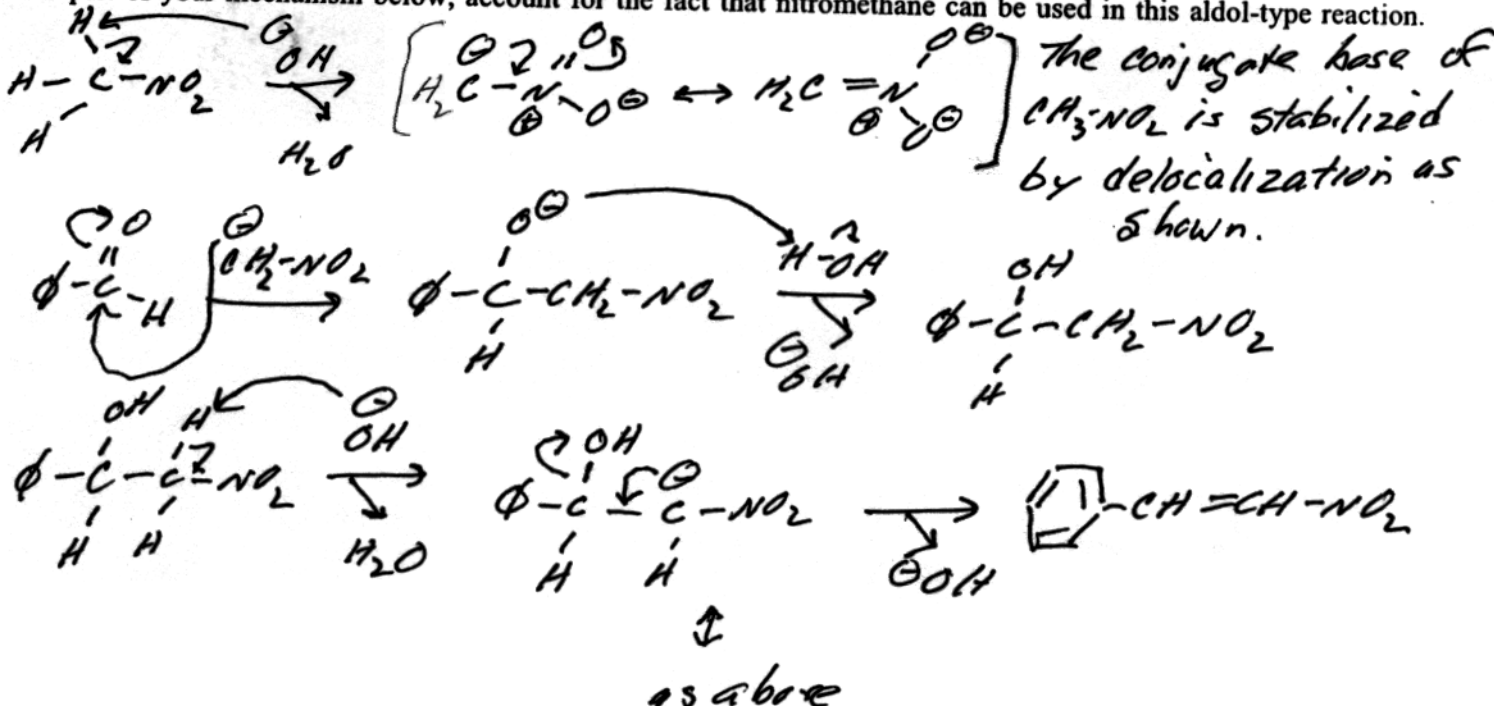 account for the fact that nitromethane can be used in this aldol-type reaction.
H
⊖
OH
H – C – NO2
H
H2O
⊖ O
H2C – N – O⊖ ↔ H2C = N
⊕
O⊖
⊕ O⊖
The conjugate base of
CH3-NO2 is stabilized
by delocalization as
shown.
O
ϕ-C-H
⊖
CH2-NO2
O⊖
ϕ-C-CH2-NO2
H
H-OH
⊖
OH
OH
ϕ-C-CH2-NO2
H
OH H
ϕ-C-C-NO2
H H
⊖
OH
H2O
OH ⊖
ϕ-C-C-NO2
H H
⊖OH
-CH=CH-NO2
↕
as above